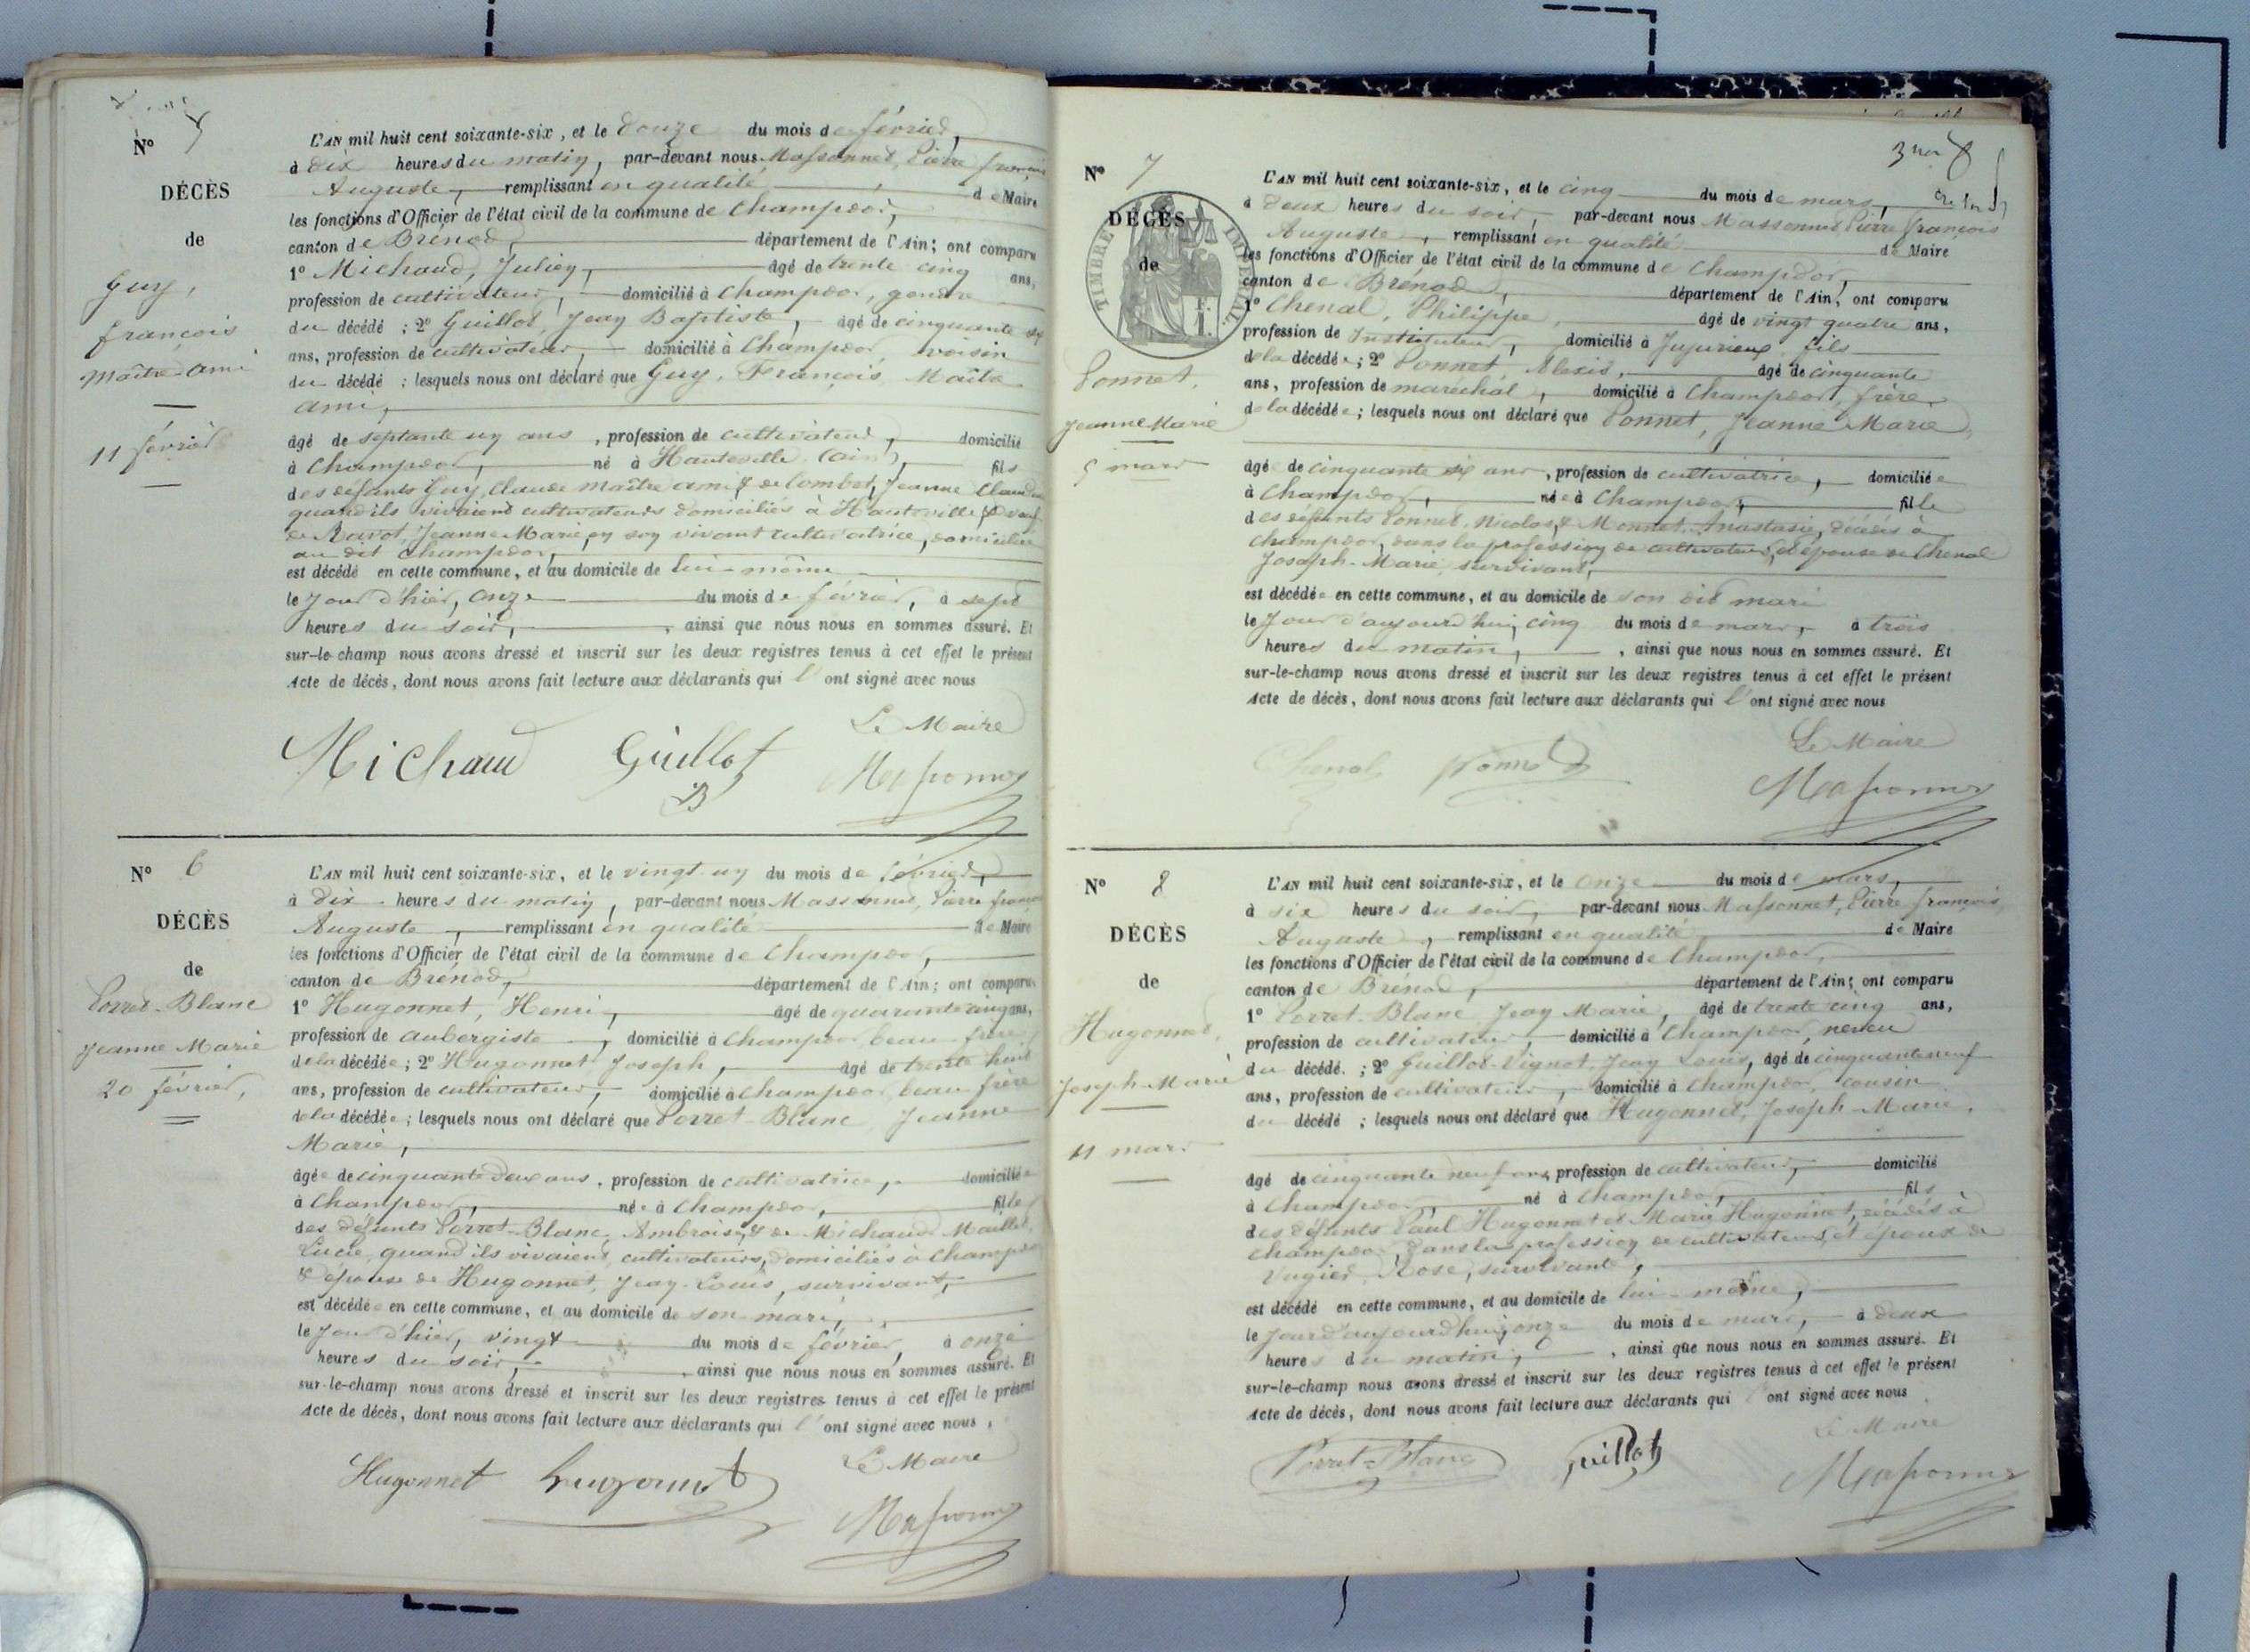 N° 5
DÉCÈS
de
Guy,
françois
Maître ami
11 février
L'AN mil huit cent soixante-six, et le douze du mois de février,
à dix heures du matin, par-devant nous Massonnet, Pierre françois
Auguste, remplissant en qualité de Maire
les fonctions d'Officier de l'état civil de la commune de Champdor,
canton de Brénod, département de l'Ain; ont comparu
1° Michaud, Julien, âgé de trente cinq ans,
profession de cultivateur, domicilié à Champdor, gendre
du décédé ; 2° Guillot, Jean Baptiste, âgé de cinquante six
ans, profession de cultivateur, domicilié à Champdor, voisin
du décédé ; lesquels nous ont déclaré que Guy, François Maître
ami,
âgé de septante un ans, profession de cultivateur, domicilié
à Champdor, né à Hauteville (ain), fils
des défunts Guy, Claude Maître ami & de Combet, Jeanne Claudine
quand ils vivaient cultivateurs domiciliés à Hauteville & veuf
de Ravot, Jeanne Marie, en son vivant cultivatrice, domiciliée
au dit Champdor,
est décédé en cette commune, et au domicile de lui-même
le jour d'hier, onze du mois de février, à sept
heures du soir, ainsi que nous nous en sommes assuré. Et
sur-le-champ nous avons dressé et inscrit sur les deux registres tenus à cet effet le présent
Acte de décès, dont nous avons fait lecture aux déclarants qui l'ont signé avec nous
Le Maire
Michaud Guillot Massonnet
JB
N° 6
DÉCÈS
de
Porret-Blanc
Jeanne Marie
20 février,
L'AN mil huit cent soixante-six, et le vingt-un du mois de février,
à dix heures du matin, par-devant nous Massonnet, Pierre françois
Auguste, remplissant en qualité de Maire
les fonctions d'Officier de l'état civil de la commune de Champdor,
canton de Brénod, département de l'Ain; ont comparu
1° Hugonnet, Henri, âgé de quarante cinq ans,
profession de aubergiste, domicilié à Champdor, beau frère
de la décédée ; 2° Hugonnet Joseph, âgé de trente huit
ans, profession de cultivateur, domicilié à Champdor, beau frère
de la décédée ; lesquels nous ont déclaré que Porret-Blanc, Jeanne
Marie,
âgée de cinquante deux ans, profession de cultivatrice, domiciliée
à Champdor, née à Champdor, fille
des défunts Porret-Blanc, Ambroise, & de Michaud Maillet,
Lucie, quand ils vivaient, cultivateurs, domiciliés à Champdor
& épouse de Hugonnet, Jean-Louis, survivant,
est décédée en cette commune, et au domicile de son mari,
le jour d'hier, vingt du mois de février, à onze
heures du soir, ainsi que nous nous en sommes assuré. Et
sur-le-champ nous avons dressé et inscrit sur les deux registres tenus à cet effet le présent
Acte de décès, dont nous avons fait lecture aux déclarants qui l'ont signé avec nous,
Le Maire
Hugonnet hugonnet Massonnet
N° 7
DÉCÈS
de
TIMBRE IMPÉRIAL
F.
1.
Ponnet,
Jeanne Marie
5 mars
L'AN mil huit cent soixante-six, et le cinq du mois de mars,
à deux heures du soir, par-devant nous Massonnet, Pierre françois
Auguste, remplissant en qualité de Maire
les fonctions d'Officier de l'état civil de la commune de Champdor,
canton de Brénod, département de l'Ain; ont comparu
1° Chenal, Philippe, âgé de vingt quatre ans,
profession de Instituteur, domicilié à Jujurieux, fils
de la décédée ; 2° Ponnet, Alexis, âgé de cinquante
ans, profession de maréchal, domicilié à Champdor, frère
de la décédée ; lesquels nous ont déclaré que Ponnet, Jeanne Marie,
âgé de cinquante six ans, profession de cultivatrice, domiciliée
à Champdor, née à Champdor, fille
des défunts Ponnet, Nicolas, & Monnet, Anastasie, décédés à
Champdor, dans la profession de cultivateurs, & épouse de Chenal
Joseph-Marie, survivant,
est décédée en cette commune, et au domicile de son dit mari
le jour d'aujourd'hui, cinq du mois de mars, à trois
heures du matin, ainsi que nous nous en sommes assuré. Et
sur-le-champ nous avons dressé et inscrit sur les deux registres tenus à cet effet le présent
Acte de décès, dont nous avons fait lecture aux déclarants qui l'ont signé avec nous
Le Maire
Chenal Ponnet Massonnet
N° 8
DÉCÈS
de
Hugonnet,
Joseph-Marie
11 mars
L'AN mil huit cent soixante-six, et le onze du mois de mars,
à six heures du soir, par-devant nous Massonnet, Pierre françois
Auguste, remplissant en qualité de Maire
les fonctions d'Officier de l'état civil de la commune de Champdor,
canton de Brénod, département de l'Ain; ont comparu
1° Porret-Blanc Jean Marie, âgé de trente cinq ans,
profession de cultivateur, domicilié à Champdor, neveu
du décédé. ; 2° Guillot-Vignot, Jean Louis, âgé de cinquante neuf
ans, profession de cultivateur, domicilié à Champdor, cousin
du décédé ; lesquels nous ont déclaré que Hugonnet, Joseph-Marie,
âgé de cinquante neuf ans, profession de cultivateur, domicilié
à Champdor, né à Champdor, fils
des défunts Paul Hugonnet et Marie Hugonnet, décédés à
Champdor, dans la profession de cultivateurs, et époux de
Rose, survivante,
est décédé en cette commune, et au domicile de lui-même,
le jour d'aujourd'hui, onze du mois de mars, à deux
heures du matin, ainsi que nous nous en sommes assuré. Et
sur-le-champ nous avons dressé et inscrit sur les deux registres tenus à cet effet le présent
Acte de décès, dont nous avons fait lecture aux déclarants qui l'ont signé avec nous
Le Maire
Porret-Blanc Guillot Massonnet